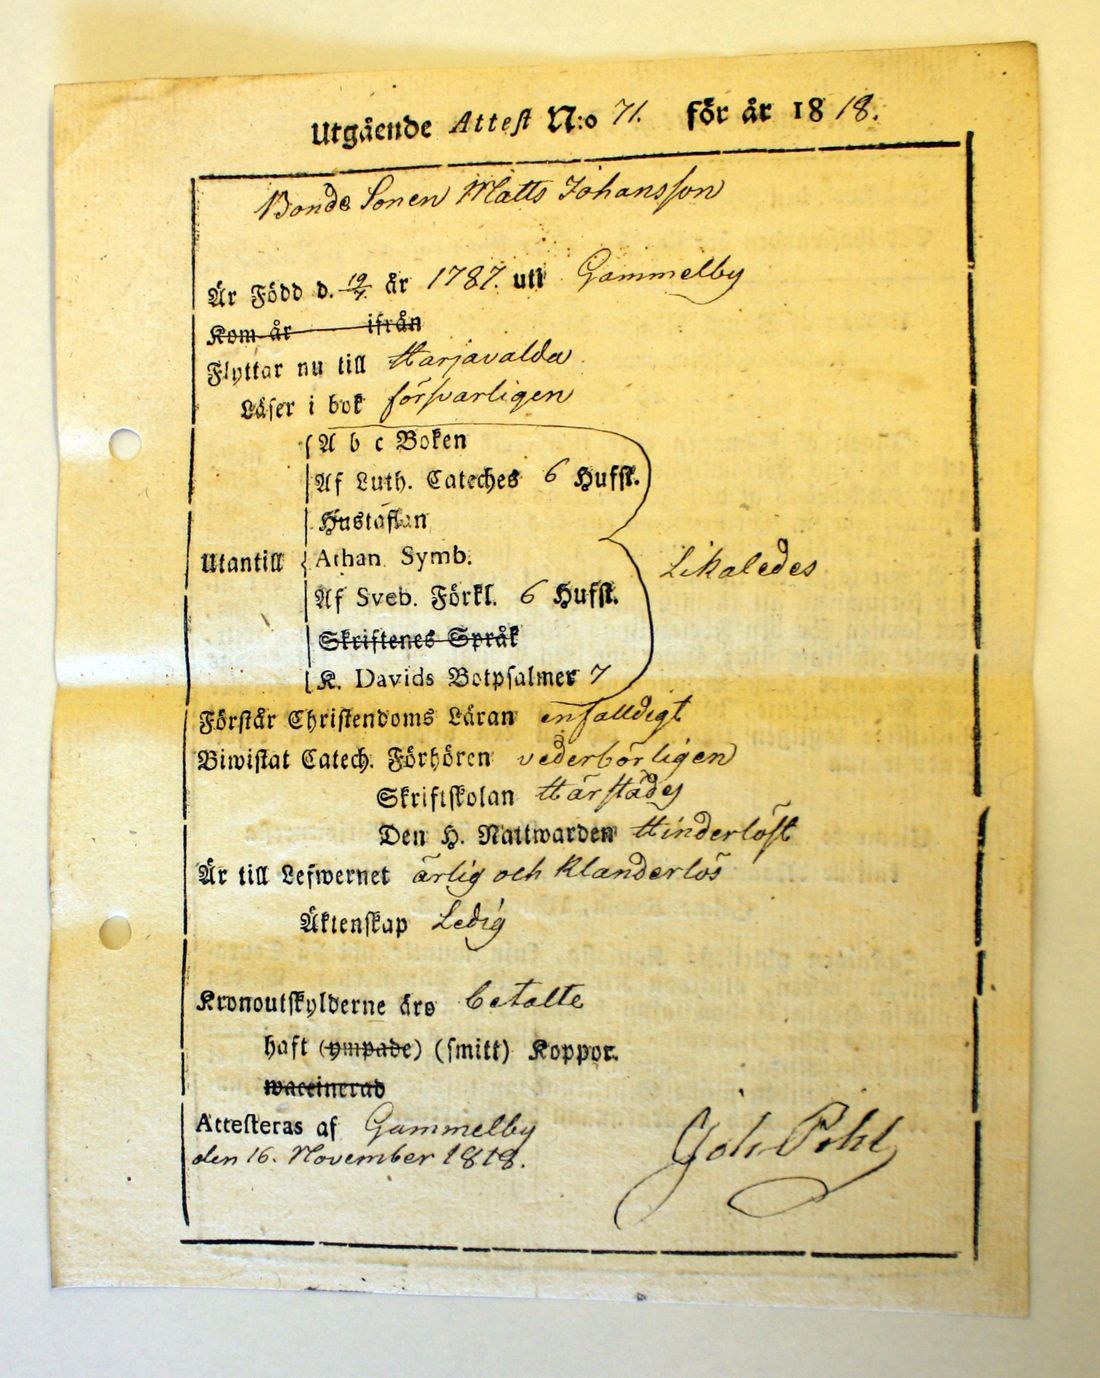 Utgående Attest N:o 71. för år 1818.
Bonde Sonen Matts Johansson
Är Född d. 19/7. år 1787. uti Gammelby
Kom år ifrån
Flyttar nu till Harjavalda
Läser i bok försvarligen
A b c Boken
Af Luth. Cateches 6 Hufst.
Hustaflan
Utantill Athan Symb. Likaledes
Af Sveb. Förkl. 6 Hufst.
Skriftenes Språk
K. Davids Botpsalmer 7
Förstår Christendoms Läran enfalldigt
Biwistat Catech. Förhören vederbörligen
Skriftskolan Härstädes
Den H. Nattwarden Hinderlöst
Är till Lefwernet ärlig och Klanderlös
Äktenskap Ledig
Kronoutskylderne äro betalte
haft (ympade) (smitt) Koppor.
waccinerad
Attesteras af Gammelby
den 16. November 1818. Joh